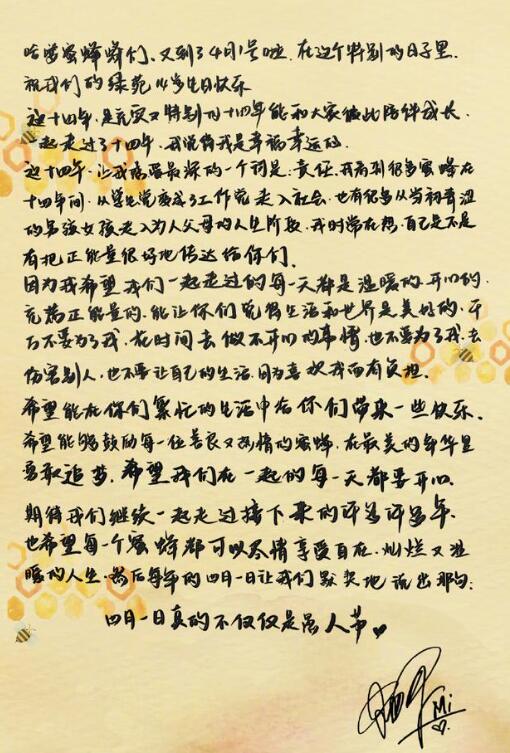 哈啰蜜蜂蜂们、又到了4月1号啦.在这个特别的日子里.
祝我们的绿苑 14岁生日快乐
这十四年,是充实又特别的十四年能和大家彼此陪伴成长.
一起走过了十四年,我觉得我是幸福幸运的.
这十四年,让我感受最深的一个词是:责任.我看到很多蜜蜂在
十四年间.从学生党变成了工作党走入社会.也有很多从当初青涩
的男孩女孩走入为人父母的人生阶段.我时常在想,自己是不是
有把正能量很好地传达给你们.
因为我希望我们一起走过的每一天都是温暖的.开心的.
充满正能量的.能让你们觉得生活和世界是美好的.千
万不要为了我.花时间去做不开心的事情.也不要为了我.去
伤害别人.也不要让自己的生活.因为喜欢我而有负担.
希望能在你们繁忙的生活中给你们带来一些快乐.
希望能够鼓励每一位善良又热情的蜜蜂.在最美的年华里
勇敢追梦.希望我们在一起的每一天都要开心.
期待我们继续一起走过接下来的许多许多年.
也希望每一个蜜蜂都可以尽情享受自在.灿烂又温
暖的人生.然后每年的四月一日让我们默契地说出那句:
四月一日真的不仅仅是愚人节
Mi